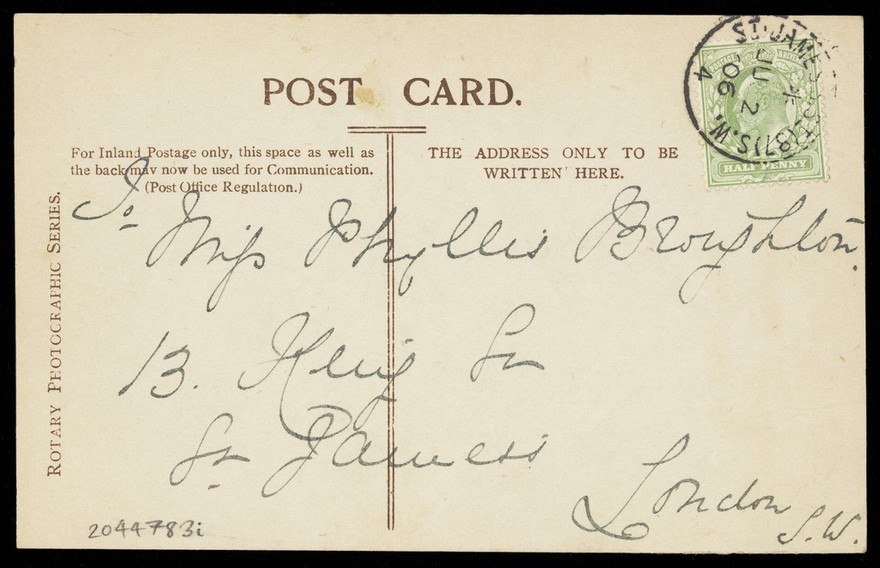 POST CARD.
For Inland Postage only, this space as well as
the back may now be used for Communication.
(Post Office Regulation.)
THE ADDRESS ONLY TO BE
WRITTEN HERE.
ROTARY PHOTOGRAPHIC SERIES.
ST. JAMES'S ST (37) S.W.
4
JU 2
06
HALF PENNY
To
Miss Phyllis Broughton.
13. King St
St James's
London
S.W.
2044783i